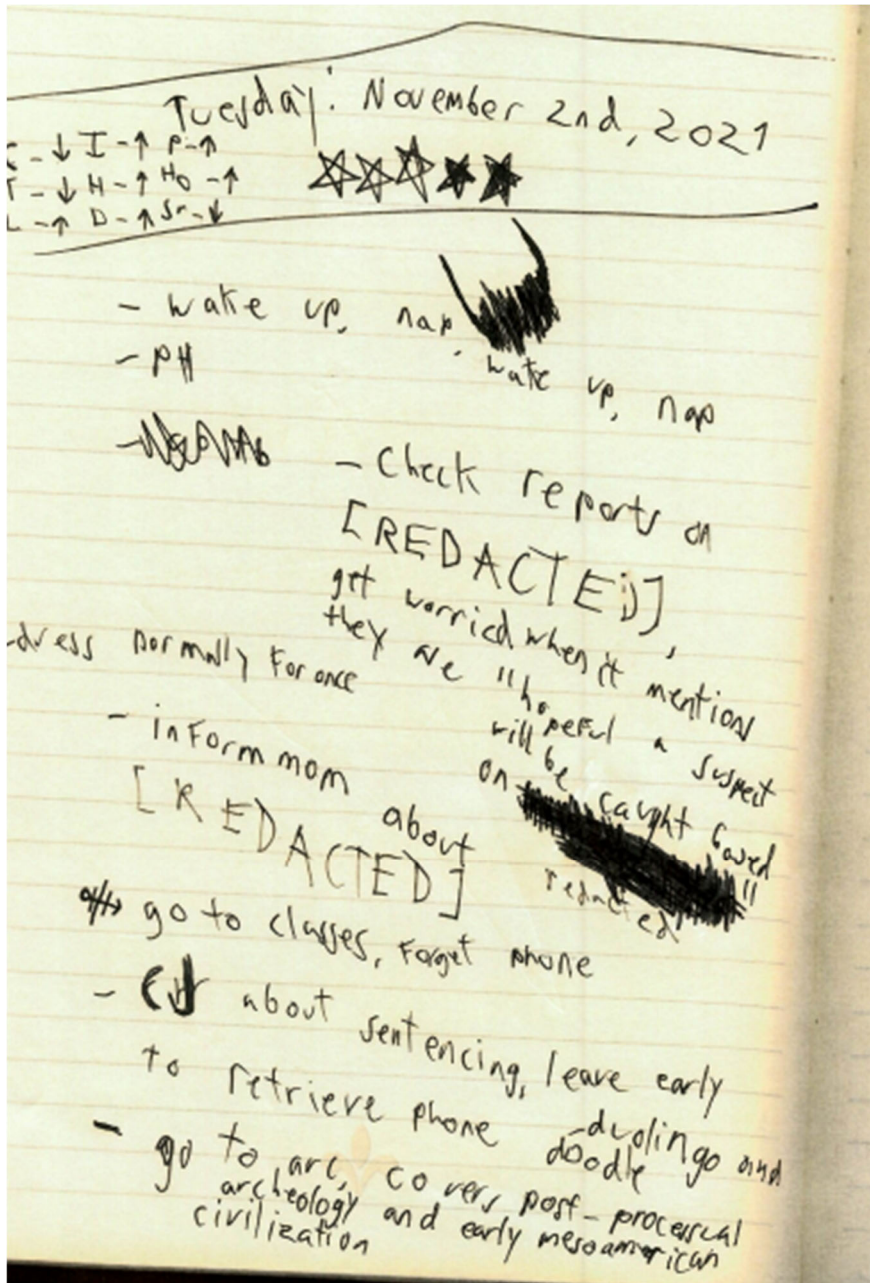 Tuesday: November 2nd, 2021
- ↓ I - ↑ P - ↑
- ↓ H - ↑ HO - ↑
- ↑ D - ↑ Sr - ↓
- wake up, nap, wake up, nap
- PH
- Check reports on
[REDACTED],
get worried when it mentions
they are "hopeful a suspect
will be caught based
on "
redacted
dress normally for once
- inform mom about
[REDACTED]
go to classes, forget phone
- about sentencing, leave early
to retrieve phone
- duolingo and
doodle
- go to arc, covers post-processual
archeology and early mesoamerican
civilization